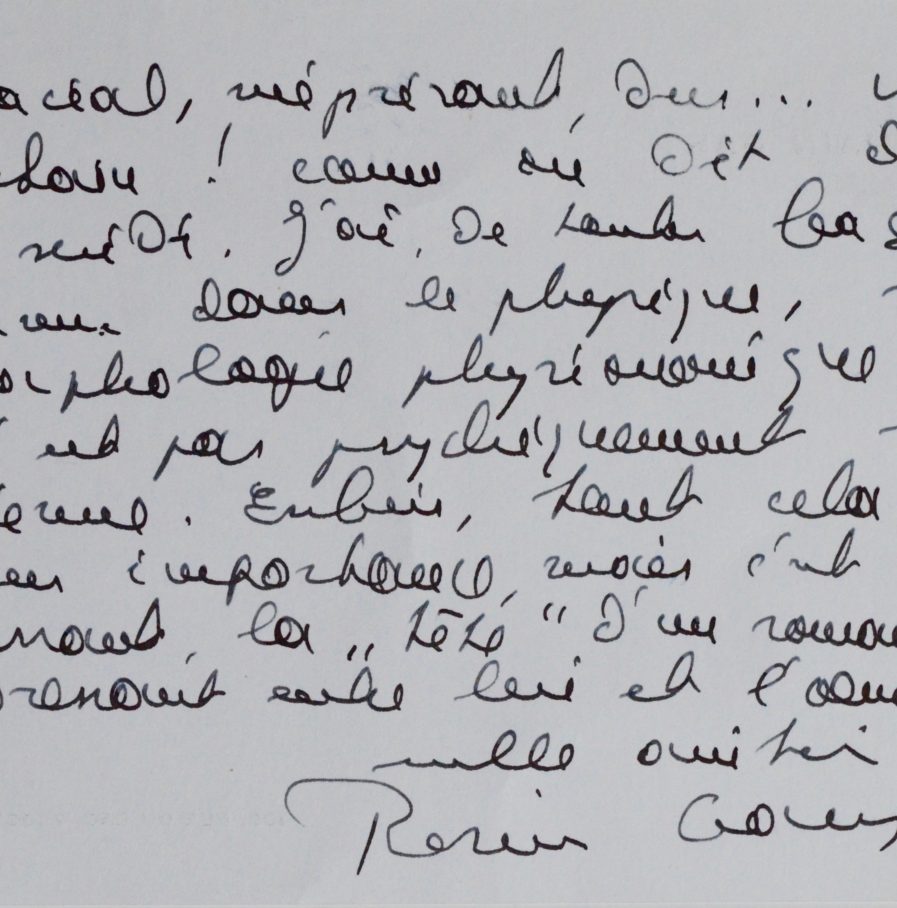 acial, méprisant, dur...
! comme on dit
J'ai, de toutes
dans le physique,
orphologie physionomique
est pas psychiquement
terne. Enfin, tout cela
importance, mais c'est
la „ tête " d'un roman
entre lui et l'oeu
mille amitiés
Romain Gary